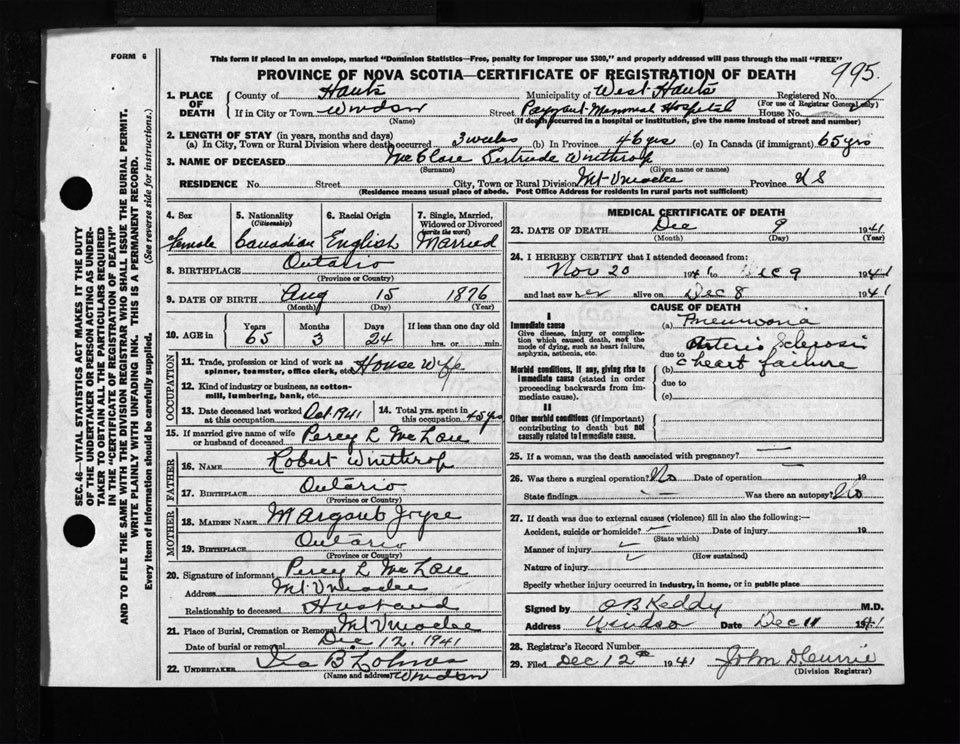 FORM 6
This form if placed in an envelope, marked "Dominion Statistics—Free, penalty for improper use $300," and properly addressed will pass through the mail "FREE"
PROVINCE OF NOVA SCOTIA—CERTIFICATE OF REGISTRATION OF DEATH
995
1. PLACE OF DEATH
County of Hants Municipality of West Hants Registered No.
(For use of Registrar General only)
If in City or Town Windsor Street Payzant Memorial Hospital House No.
(Name) (If death occurred in a hospital or institution, give the name instead of street and number)
2. LENGTH OF STAY (in years, months and days)
(a) In City, Town or Rural Division where death occurred 3 weeks (b) In Province 46 yrs (c) In Canada (if immigrant) 65 yrs
3. NAME OF DECEASED Gertrude Winthrop
(Surname) (Given name or names)
RESIDENCE No. Street City, Town or Rural Division Mt Uniacke Province N S
(Residence means usual place of abode. Post Office Address for residents in rural parts not sufficient)
4. Sex Female
5. Nationality (Citizenship) Canadian
6. Racial Origin English
7. Single, Married, Widowed or Divorced (write the word) Married
8. BIRTHPLACE Ontario
(Province or Country)
9. DATE OF BIRTH Aug 15 1876
(Month) (Day) (Year)
10. AGE in Years Months Days If less than one day old
65 3 24 hrs. or min.
OCCUPATION
11. Trade, profession or kind of work as spinner, teamster, office clerk, etc. House Wife
12. Kind of industry or business, as cotton-mill, lumbering, bank, etc.
13. Date deceased last worked at this occupation Oct 1941
14. Total yrs. spent in this occupation 45 yrs
15. If married give name of wife or husband of deceased Percy L
FATHER
16. NAME Robert Winthrop
17. BIRTHPLACE Ontario
(Province or Country)
MOTHER
18. MAIDEN NAME
19. BIRTHPLACE Ontario
(Province or Country)
20. Signature of informant Percy L
Address Mt Uniacke
Relationship to deceased Husband
21. Place of Burial, Cremation or Removal Mt Uniacke
Date of burial or removal Dec 12, 1941
22. UNDERTAKER Windsor
(Name and address)
MEDICAL CERTIFICATE OF DEATH
23. DATE OF DEATH Dec 9 1941
(Month) (Day) (Year)
24. I HEREBY CERTIFY that I attended deceased from:
Nov 20 1941 to Dec 9 1941
and last saw her alive on Dec 8 1941
CAUSE OF DEATH
I
Immediate cause
Give disease, injury or complication which caused death, not the mode of dying, such as heart failure, asphyxia, asthenia, etc.
(a) Pneumonia
due to Arterio Sclerosis
Morbid conditions, if any, giving rise to immediate cause (stated in order proceeding backwards from immediate cause).
(b) heart failure
due to
(c)
II
Other morbid conditions (if important) contributing to death but not causally related to immediate cause.
25. If a woman, was the death associated with pregnancy?
26. Was there a surgical operation? No Date of operation 19
State findings Was there an autopsy? No
27. If death was due to external causes (violence) fill in also the following:—
Accident, suicide or homicide? Date of injury 19
(State which)
Manner of injury
(How sustained)
Nature of injury
Specify whether injury occurred in industry, in home, or in public place
Signed by O B Keddy M.D.
Address Windsor Date Dec 11 1941
28. Registrar's Record Number
29. Filed Dec 12th 1941
(Division Registrar)
SEC. 46—VITAL STATISTICS ACT MAKES IT THE DUTY
OF THE UNDERTAKER OR PERSON ACTING AS UNDER-
TAKER TO OBTAIN ALL THE PARTICULARS REQUIRED
IN THE "CERTIFICATE OF REGISTRATION OF DEATH"
AND TO FILE THE SAME WITH THE DIVISION REGISTRAR WHO SHALL ISSUE THE BURIAL PERMIT.
WRITE PLAINLY WITH UNFADING INK. THIS IS A PERMANENT RECORD.
Every item of information should be carefully supplied. (See reverse side for instructions.)